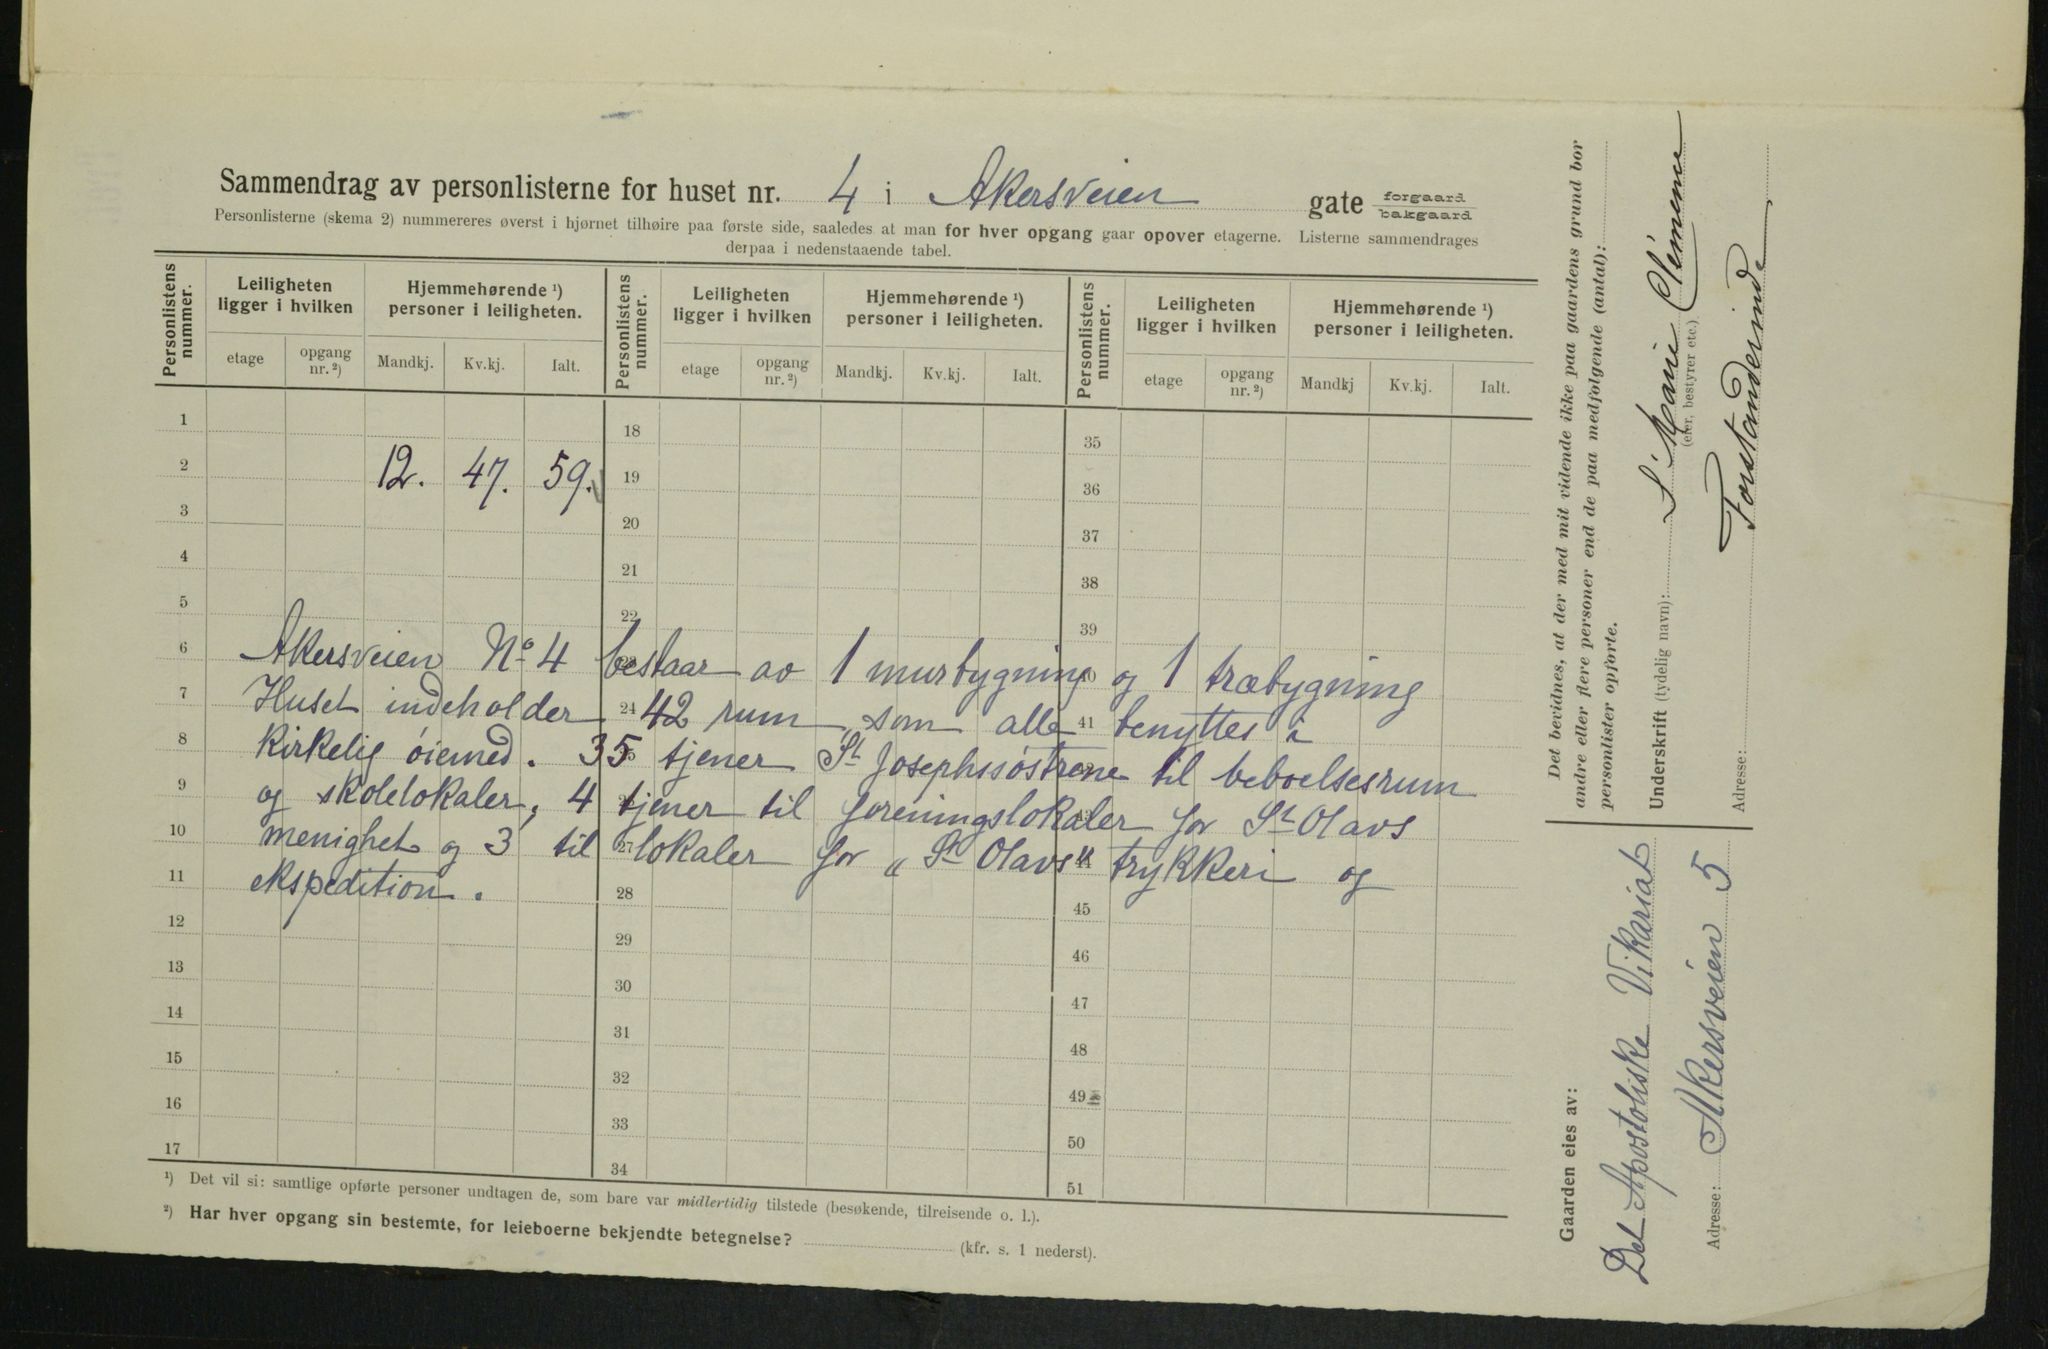 Sammendrag av personlisterne for huset nr. 4 i Akersveien gate forgaard bakgaard
Personlisterne (skema 2) nummereres øverst i hjørnet tilhøire paa første side, saaledes at man for hver opgang gaar opover etagerne. Listerne sammendrages
derpaa i nedenstaaende tabel.
Personlistens nummer. Leiligheten ligger i hvilken Hjemmehørende ¹) personer i leiligheten. Personlistens nummer. Leiligheten ligger i hvilken Hjemmehørende ¹) personer i leiligheten. Personlistens nummer. Leiligheten ligger i hvilken Hjemmehørende ¹) personer i leiligheten.
etage opgang nr. ²) Mandkj. Kv.kj. Ialt. etage opgang nr. ²) Mandkj. Kv.kj. Ialt. etage opgang nr. ²) Mandkj Kv.kj. Ialt.
1 18 35
2 12. 47. 59. 19 36
3 20 37
4 21 38
5 22 39
6 23 40
Akersveien No 4 bestaar av 1 murbygning og 1 træbygning
7 24 41
Huset indeholder 42 rum, som alle benyttes i
8 25 42
kirkelig øiemed. 35 tjener St Josephssøstrene til beboelsesrum
9 26 43
og skolelokaler, 4 tjener til foreningslokaler for St Olavs
10 27 44
menighet og 3 til lokaler for „St Olavs" trykkeri og
11 28 45
ekspedition.
12 29 46
13 30 47
14 31 48
15 32 49
16 33 50
17 34 51
¹) Det vil si: samtlige opførte personer undtagen de, som bare var midlertidig tilstede (besøkende, tilreisende o. l.).
²) Har hver opgang sin bestemte, for leieboerne bekjendte betegnelse? (kfr. s. 1 nederst).
Det bevidnes, at der med mit vidende ikke paa gaardens grund bor
andre eller flere personer end de paa medfølgende (antal):
personlister opførte.
Underskrift (tydelig navn): S. Marie Clémence
(eier, bestyrer etc.)
Forstanderinde
Adresse:
Gaarden eies av:
Det Apostoliske Vikariat
Adresse: Akersveien 5